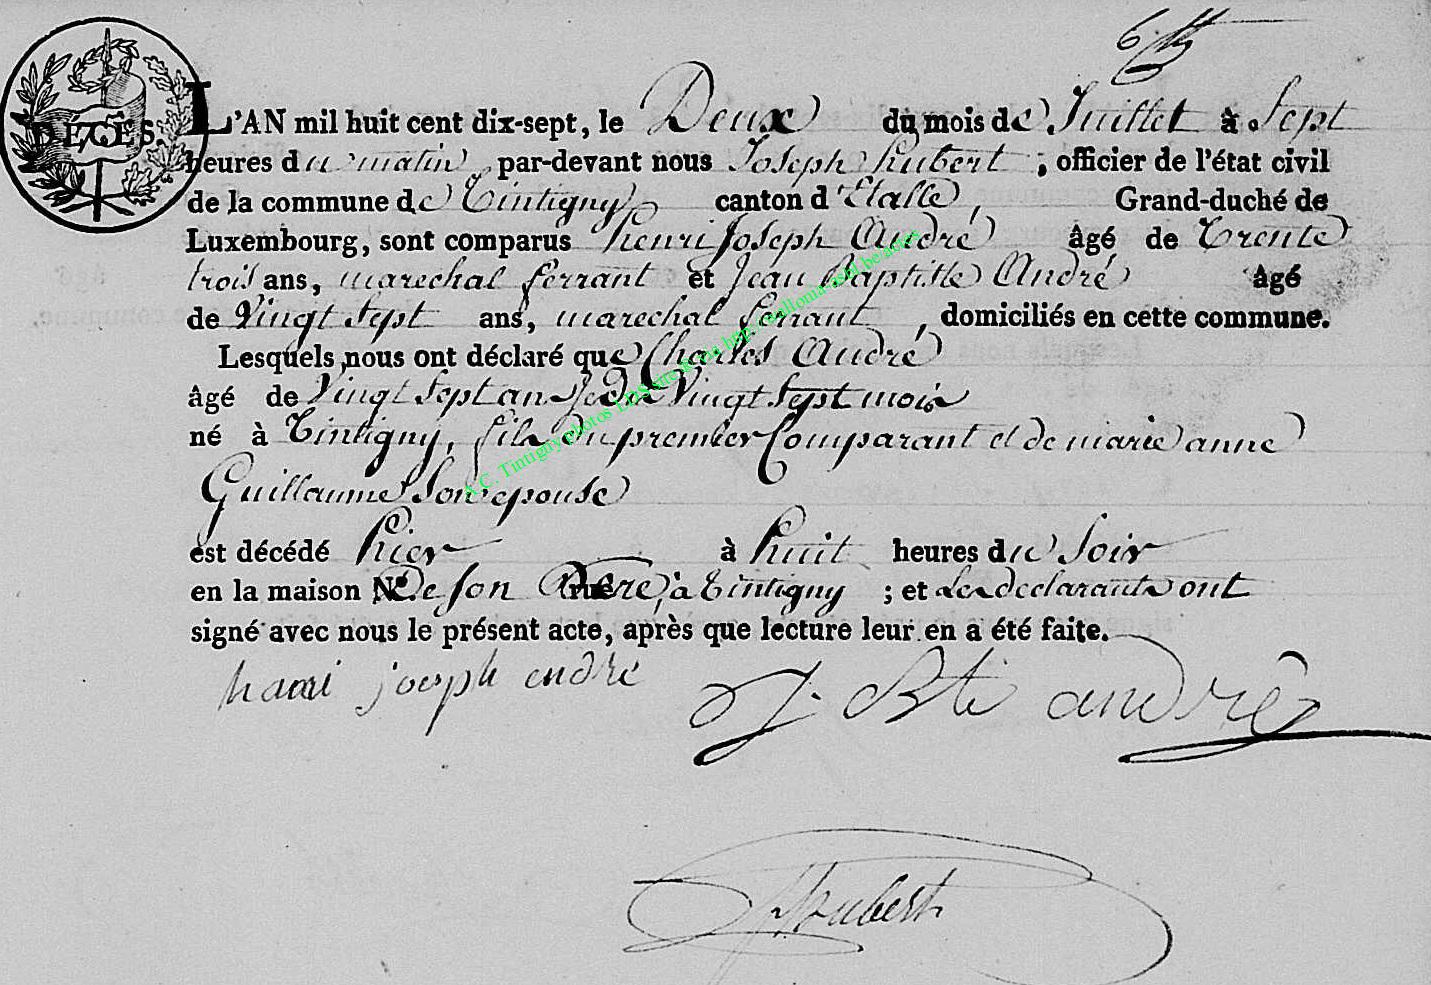 DÉCÈS.
L'AN mil huit cent dix-sept, le Deux du mois de Juillet à Sept
heures du matin par-devant nous Joseph hubert, officier de l'état civil
de la commune de Tintigny canton d'Etalle, Grand-duché de
Luxembourg, sont comparus henri Joseph André âgé de Trente
trois ans, marechal ferrant et Jean Baptiste André âgé
de Vingt Sept ans, marechal ferrant, domiciliés en cette commune.
Lesquels nous ont déclaré que Charles André
âgé de Vingt Sept mois
né à Tintigny, fils du premier Comparant et de marie anne
Guillaume Son epouse
est décédé hier à huit heures du Soir
en la maison N.º de son Pere, à Tintigny; et Les declarants ont
signé avec nous le présent acte, après que lecture leur en a été faite.
henri joseph andré J. Bte andré
Hubert
A.C. Tintigny photos LDS site & via http://wallonia-asbl.be/actes